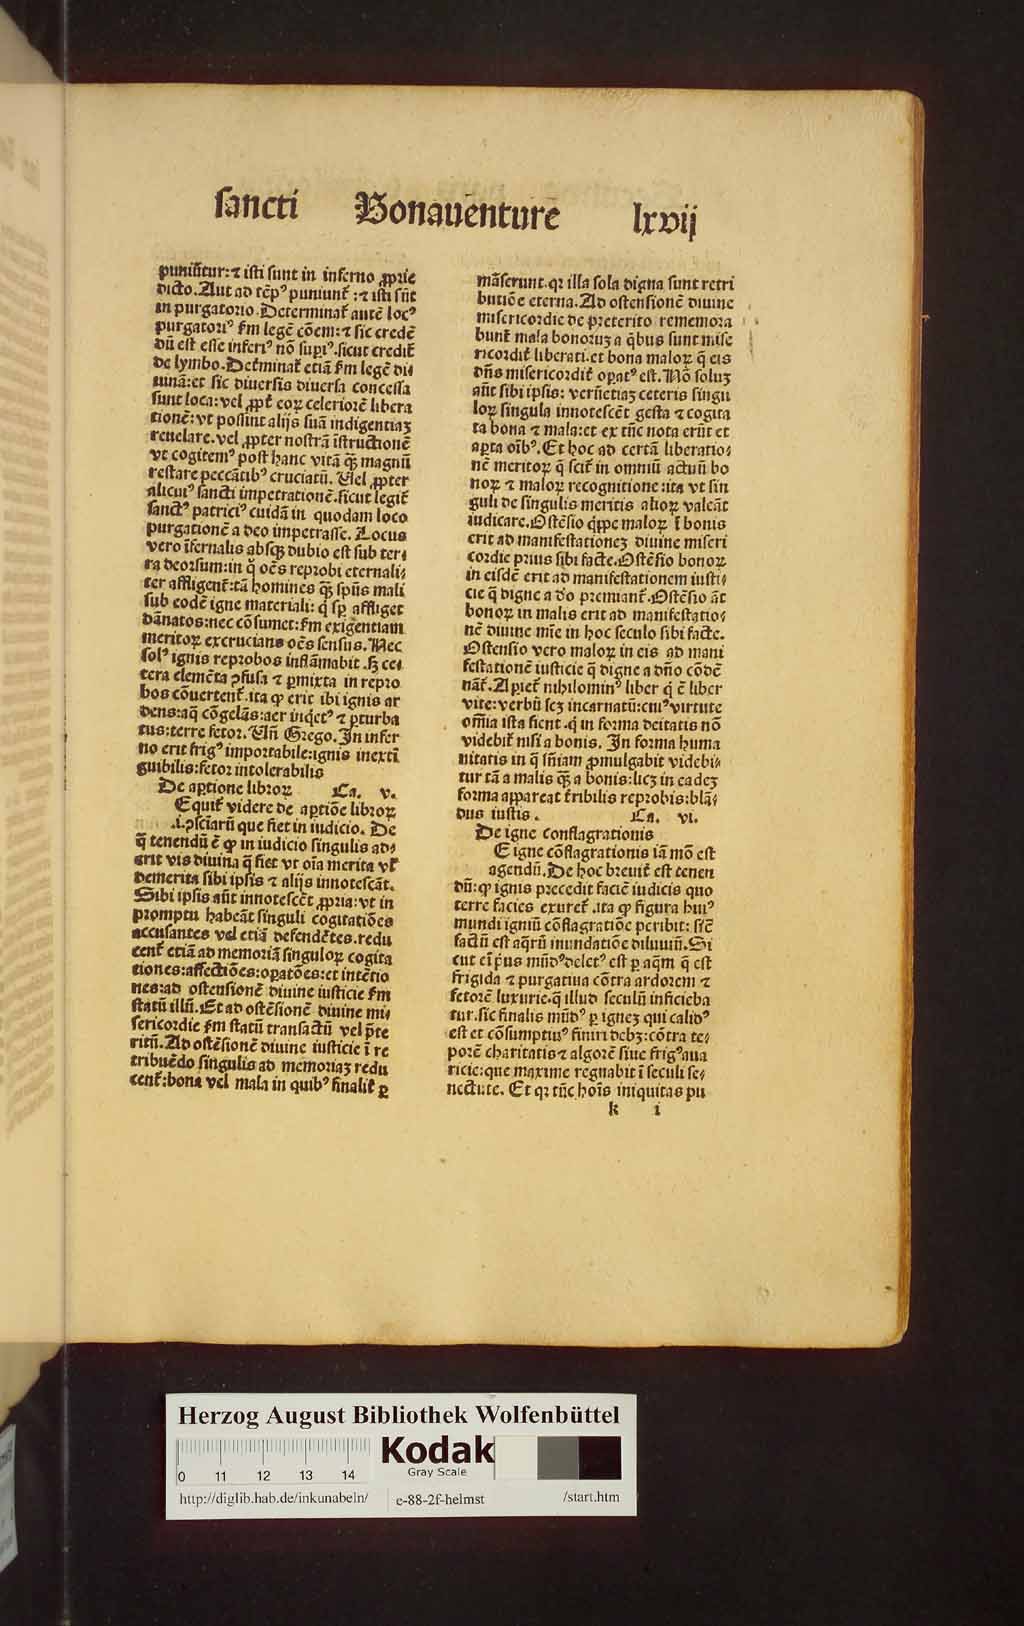 sancti Bonauēnture lxvij
puniūtur: ⁊ isti sunt in inferno ꝓprie
dicto. Aut ad tēpꝰ puniunt᷑: ⁊ isti sūt
in purgatorio. Determinat᷑ autē locꝰ
purgatoriꝰ ẜm legē cōem: ⁊ sic credē
dū est esse inferiꝰ nō supiꝰ. sicut credit᷑
de lymbo. Det̄minat᷑ etiā ẜm legē di⸗
uinā: et sic diuersis diuersa concessa
sunt loca: vel ꝓpt̄ eoꝝ celeriorē libera
tionē: vt possint alijs suā indigentiaꝫ
reuelare. vel ꝓpter nostrā īstructionē
vt cogitemꝰ post hanc vitā ꝙ̄ magnū
restare peccātibꝰ cruciatū. Uel ꝓpter
alicuiꝰ sancti impetrationē. sicut legit᷑
sanctꝰ patriciꝰ cuidā in quodam loco
purgationē a deo impetrasse. Locus
vero īfernalis absqꝫ dubio est sub ter⸗
ra deorsum: in q̊ oēs reprobi eternali⸗
ter affligent᷑: tā homines ꝙ̄ spūs mali
sub eodē igne materiali: q̇ sꝑ affliget
dānatos: nec cōsumet: ẜm exigentiam
meritoꝝ excrucians oēs sensus. Nec
solꝰ ignis reprobos inflāmabit. sꝫ ce⸗
tera elemēta ꝯfusa ⁊ ꝑmixta in repro
bos cōuertent᷑. ita ꝙ erit ibi ignis ar
dens: aq̄ cōgelās: aer inq̇etꝰ ⁊ ꝑturba
tus: terre fetor. Un̄ Grego. In infer
no erit frigꝰ importabile: ignis inextī
guibilis: fetor intolerabilis
De aꝑtione libroꝝ Ca. v.
Equit᷑ videre de aꝑtiōe libroꝝ
.i. ꝯsciarū que fiet in iudicio. De
q̄ tenendū ē ꝙ in iudicio singulis ad⸗
erit vis diuina q̄ fiet vt oīa merita vl̄
demerita sibi ipsis ⁊ alijs innotescāt.
Sibi ipsis aūt innotescēt ꝓpria: vt in
promptu habeāt singuli cogitatiōes
accusantes vel etiā defendētes. redu
cent᷑ etiā ad memoriā singuloꝝ cogita
tiones: affectiōes: oꝑatōes: et intētio
nes: ad ostensionē diuine iusticie ẜm
statū illū. Et ad ostēsionē diuine mi⸗
sericordie ẜm statū transactū vel p̄te
ritū. Ad ostēsionē diuine iusticie ī re
tribuēdo singulis ad memoriaꝫ redu
cent᷑: bona vel mala in quibꝰ finalit᷑ ꝑ
māserunt. qꝛ illa sola digna sunt retri
butiōe eterna. Ad ostensionē diuine
misericordie de preterito rememora
bunt᷑ mala bonoruꝫ a q̇bus sunt mise
ricordit᷑ liberati. et bona maloꝝ q̄ eis
dn̄s misericordit᷑ oꝑatꝰ est. Nō soluꝫ
aūt sibi ipsis: verūetiaꝫ ceteris singu
loꝝ singula innotescēt gesta ⁊ cogita
ta bona ⁊ mala: et ex tūc nota erūt et
aꝑta oībꝰ. Et hoc ad certā liberatio⸗
nē meritoꝝ q̄ scit᷑ in omniū actuū bo
noꝝ ⁊ maloꝝ recognitione: ita vt sin
guli de singulis meritis alioꝝ valeāt
iudicare. Ostēsio q̇ppe maloꝝ ī bonis
erit ad manifestationeꝫ diuine miseri
cordie prius sibi facte. Ostēsio bonoꝝ
in eisdē erit ad manifestationem iusti⸗
cie q̄ digne a deo premiant᷑. Ostēsio āt
bonoꝝ in malis erit ad manifestatio⸗
nē diuine mīe in hoc seculo sibi facte.
Ostensio vero maloꝝ in eis ad mani
festationē iusticie q̄ digne a dn̄o cōdē
nāt᷑. Aꝑiet᷑ nihilominꝰ liber q̇ ē liber
vite: verbū scꝫ incarnatū: cuiꝰ virtute
om̄ia ista fient. q̇ in forma deitatis nō
videbit᷑ nisi a bonis. In forma huma
nitatis in q̄ sn̄iam ꝓmulgabit videbi⸗
tur tā a malis ꝙ̄ a bonis: licꝫ in eadeꝫ
forma appareat t̄ribilis reprobis: blā⸗
dus iustis. Ca. vi.
De igne conflagrationis
E igne cōflagrationis iā mō est
agendū. De hoc breuit᷑ est tenen
dū: ꝙ ignis precedit faciē iudicis quo
terre facies exuret᷑. ita ꝙ figura huiꝰ
mundi igniū cōflagratiōe peribit: sic̄
factū est aq̄rū inundatiōe diluuiū. Si
cut eī ṗus mūdꝰ deletꝰ est ꝑ aq̄m q̄ est
frigida ⁊ purgatiua cōtra ardorem ⁊
fetorē luxurie. q̄ illud seculū inficieba
tur. sic finalis mūdꝰ ꝑ igneꝫ qui calidꝰ
est et cōsumptiuꝰ finiri debꝫ: cōtra te⸗
porē charitatis ⁊ algorē siue frigꝰ aua
ricie: que maxime regnabit ī seculi se⸗
nectute. Et qꝛ tūc hoīs iniquitas pu
k i
Herzog August Bibliothek Wolfenbüttel
Kodak
Gray Scale
0 11 12 13 14
http://diglib.hab.de/inkunabeln/ e-88-2f-helmst /start.htm